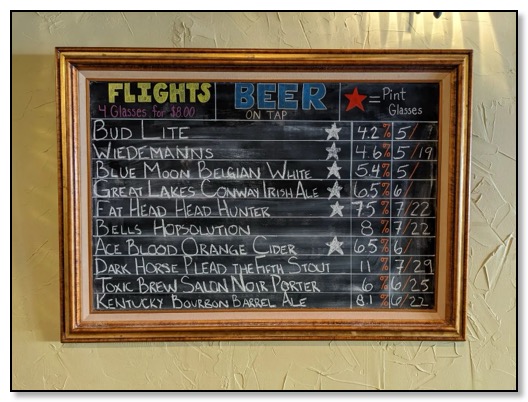 FLIGHTS
4 Glasses for $8.00
BEER
ON TAP
= Pint Glasses
BUD LITE 4.2% 5/
WIEDEMANNS 4.6% 5/19
BLUE MOON BELGIAN WHITE 5.4% 5/
GREAT LAKES CONWAY IRISH ALE 6.5% 6/
FAT HEAD HEAD HUNTER 7.5% 7/22
BELLS HOPSOLUTION 8% 7/22
ACE BLOOD ORANGE CIDER 6.5% 6/
DARK HORSE PLEAD THE FIFTH STOUT 11% 7/29
TOXIC BREW SALON NOIR PORTER 6% 6/25
KENTUCKY BOURBON BARREL ALE 8.1% 6/22